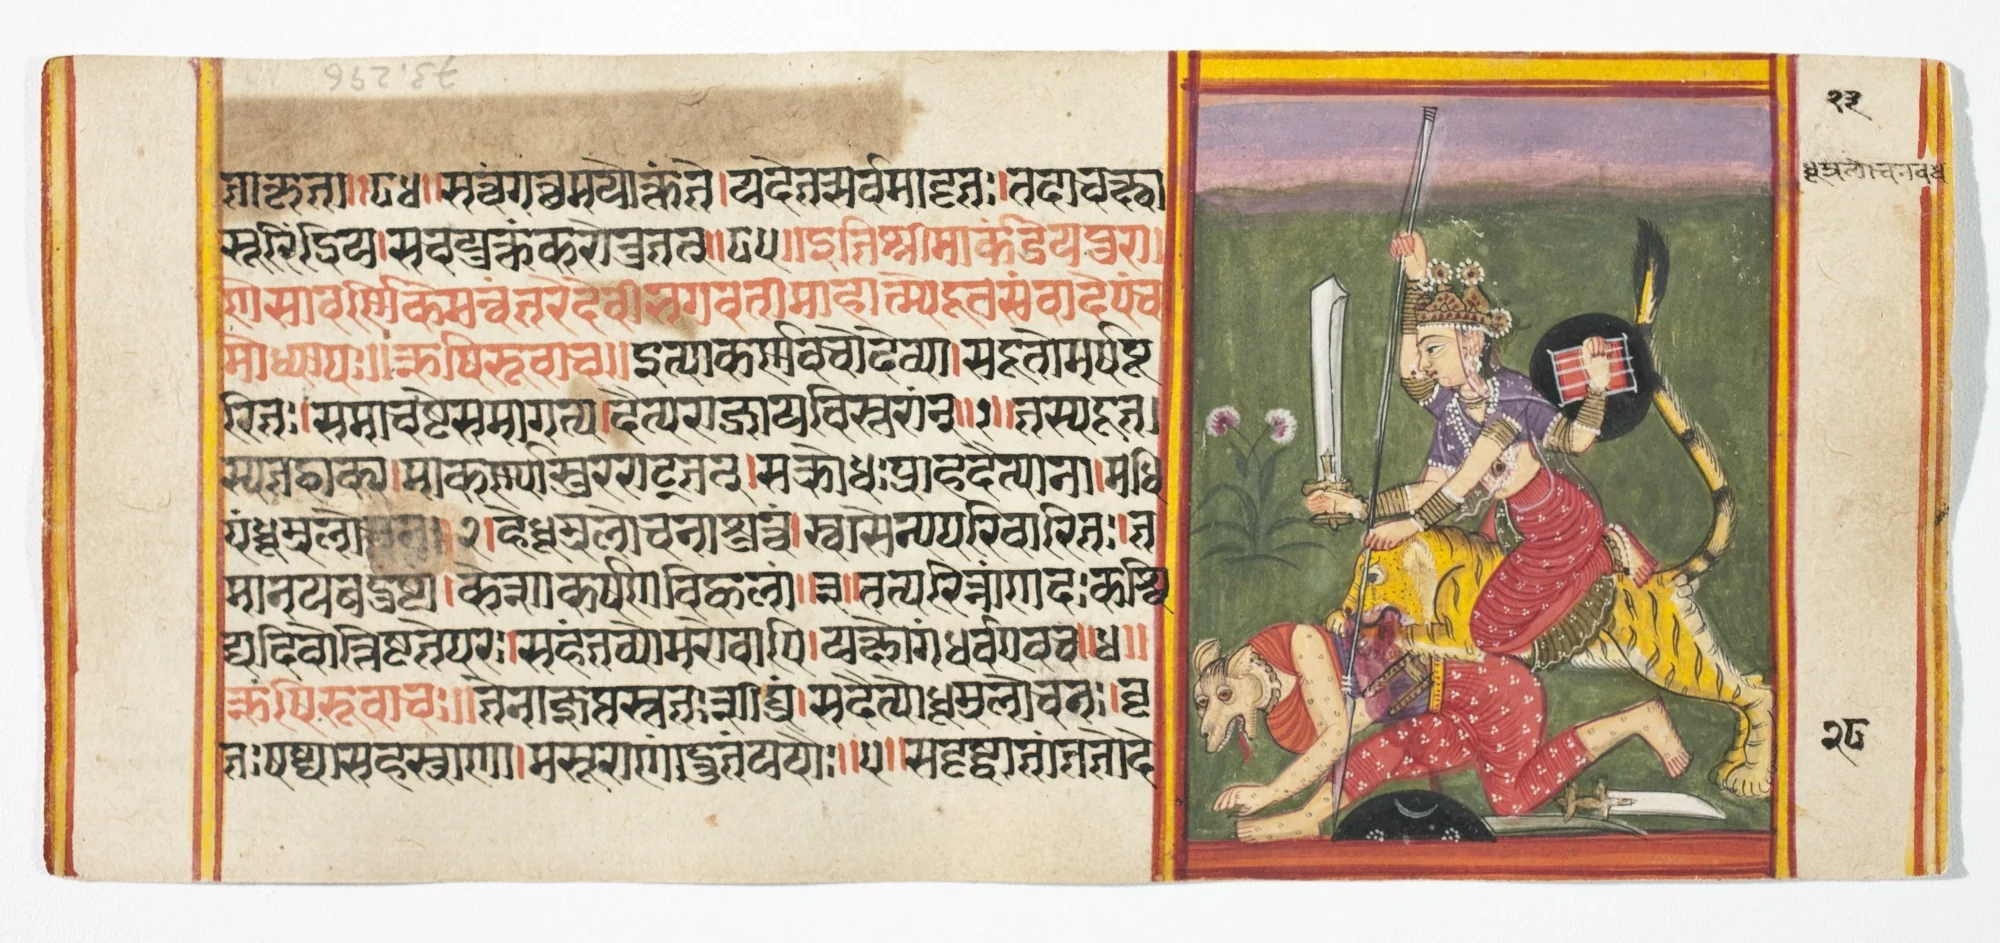 ज्ञाकृता॥८४॥सत्वंगच्छमयोक्तंते।यदेतत्सर्वमादृतः।तदाचक्ष्वा
सुरेंद्राय।सचयुक्तंकरोतुतत्॥८५॥इतिश्रीमार्कंडेयपुरा
णेसावर्णिकेमन्वंतरेदेवीभगवतीमाहात्म्येदूतसंवादेपंच
मोध्यायः॥ऋषिरुवाच॥इत्याकर्ण्यवचोदेव्याः।सदूतोमर्षपू
रितः।समाचष्टेसमागत्य।दैत्यराजायविस्तरात्॥१॥तस्यदूत
स्यतद्वाक्य।माकर्ण्यासुरराट्ततः।सक्रोधःप्राहदैत्याना।मधि
पंधूम्रलोचनं।२।हेधूम्रलोचनाशुत्वं।स्वसैन्यपरिवारितः।त
मानयबलद्दुष्टां।केशाकर्षणविह्वलां॥३॥तत्परित्राणदःकश्चि
द्यदिवोत्तिष्टतेपरः।सहंतव्योमरोवापि।यक्षोगंधर्वएवच॥४॥
ऋषिरुवाचः॥तेनाज्ञप्तस्ततःशीघ्रं।सदैत्योधूम्रलोचनः।वृ
तःषष्ट्यासहस्राणा।मसुराणांद्रुतंययोः॥५॥सदृष्ट्वातांततोदे
२३
धूम्रलोचनवध
२८